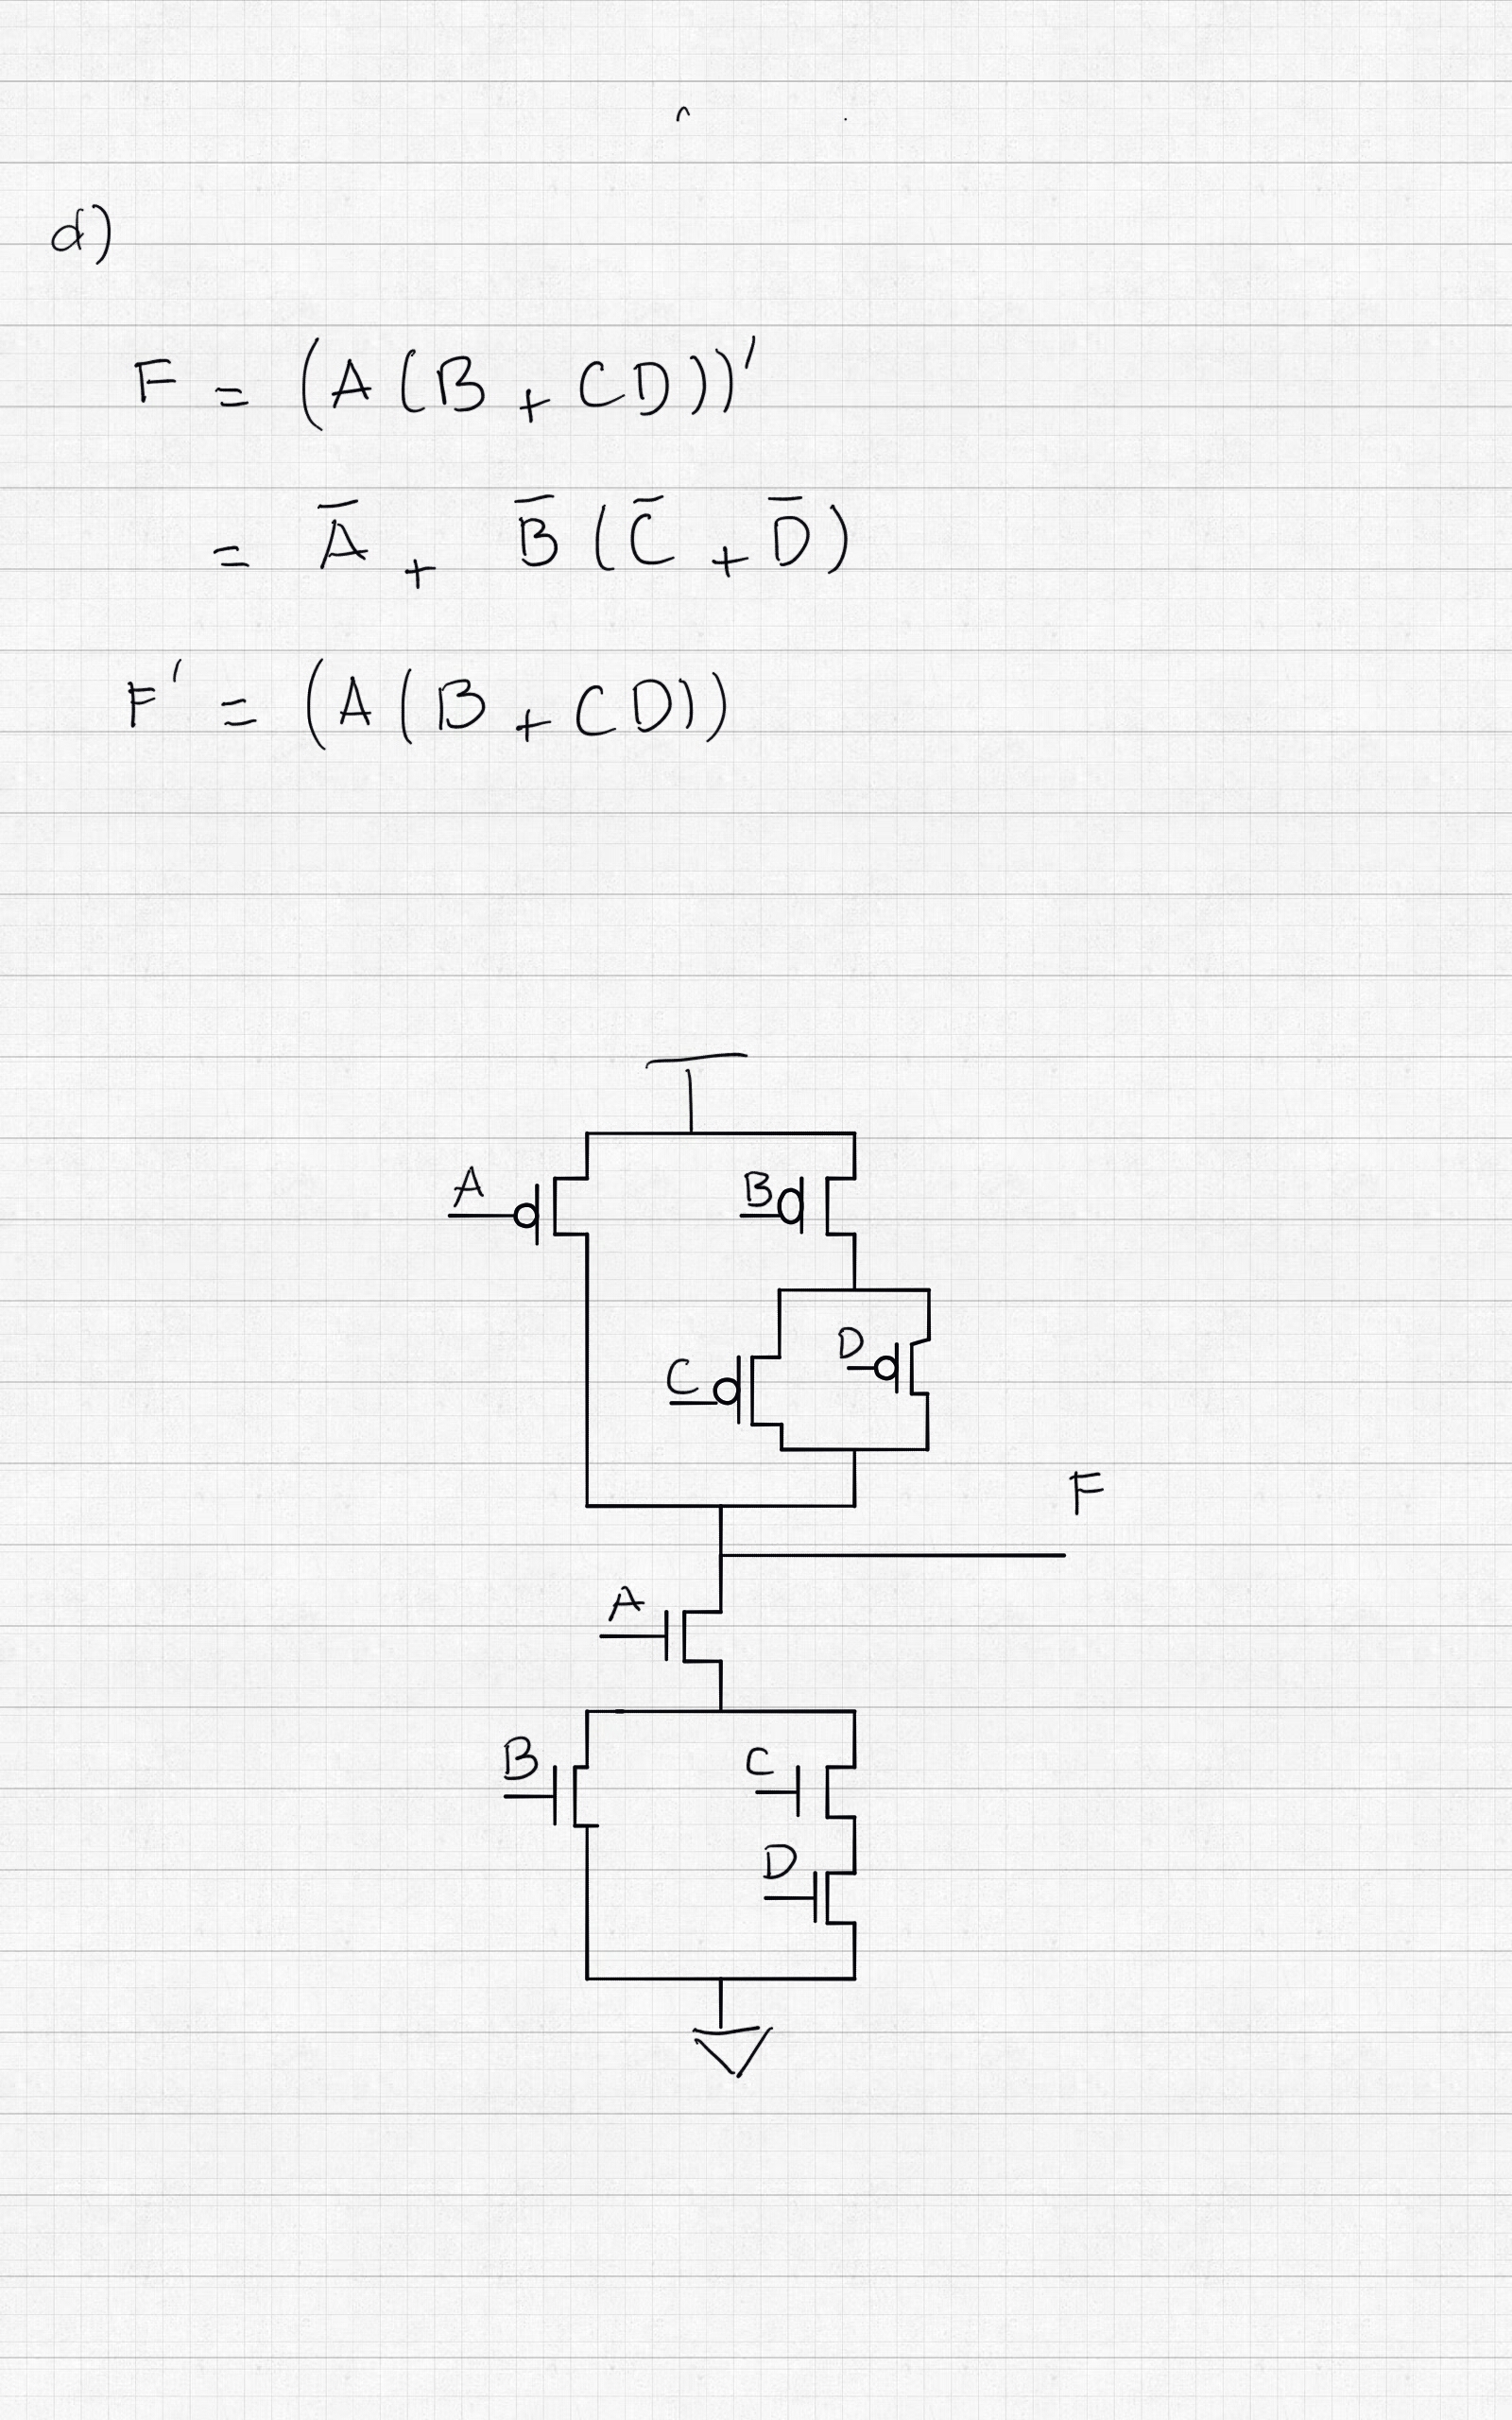 d)
F = (A(B + CD))'
= A̅ + B̅(C̅ + D̅)
F' = (A(B + CD))
A
B
D
C
F
A
B
C
D